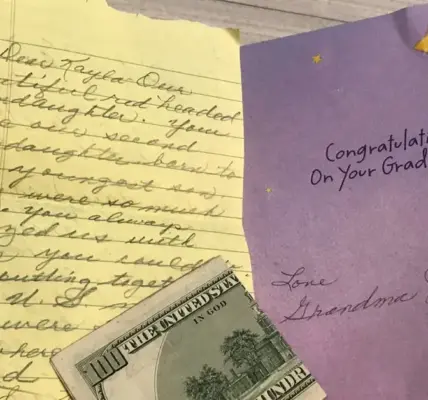 Dear Kayla Our
tiful red headed
daughter. Your
one second
daughter born to
youngest son
were so much
you always
zed us with
you could
putting toget
U S
were
where
d
Congratulati
On Your Grad
Love
Grandma
100
THE UNITED ST
IN GOD
HUNDR